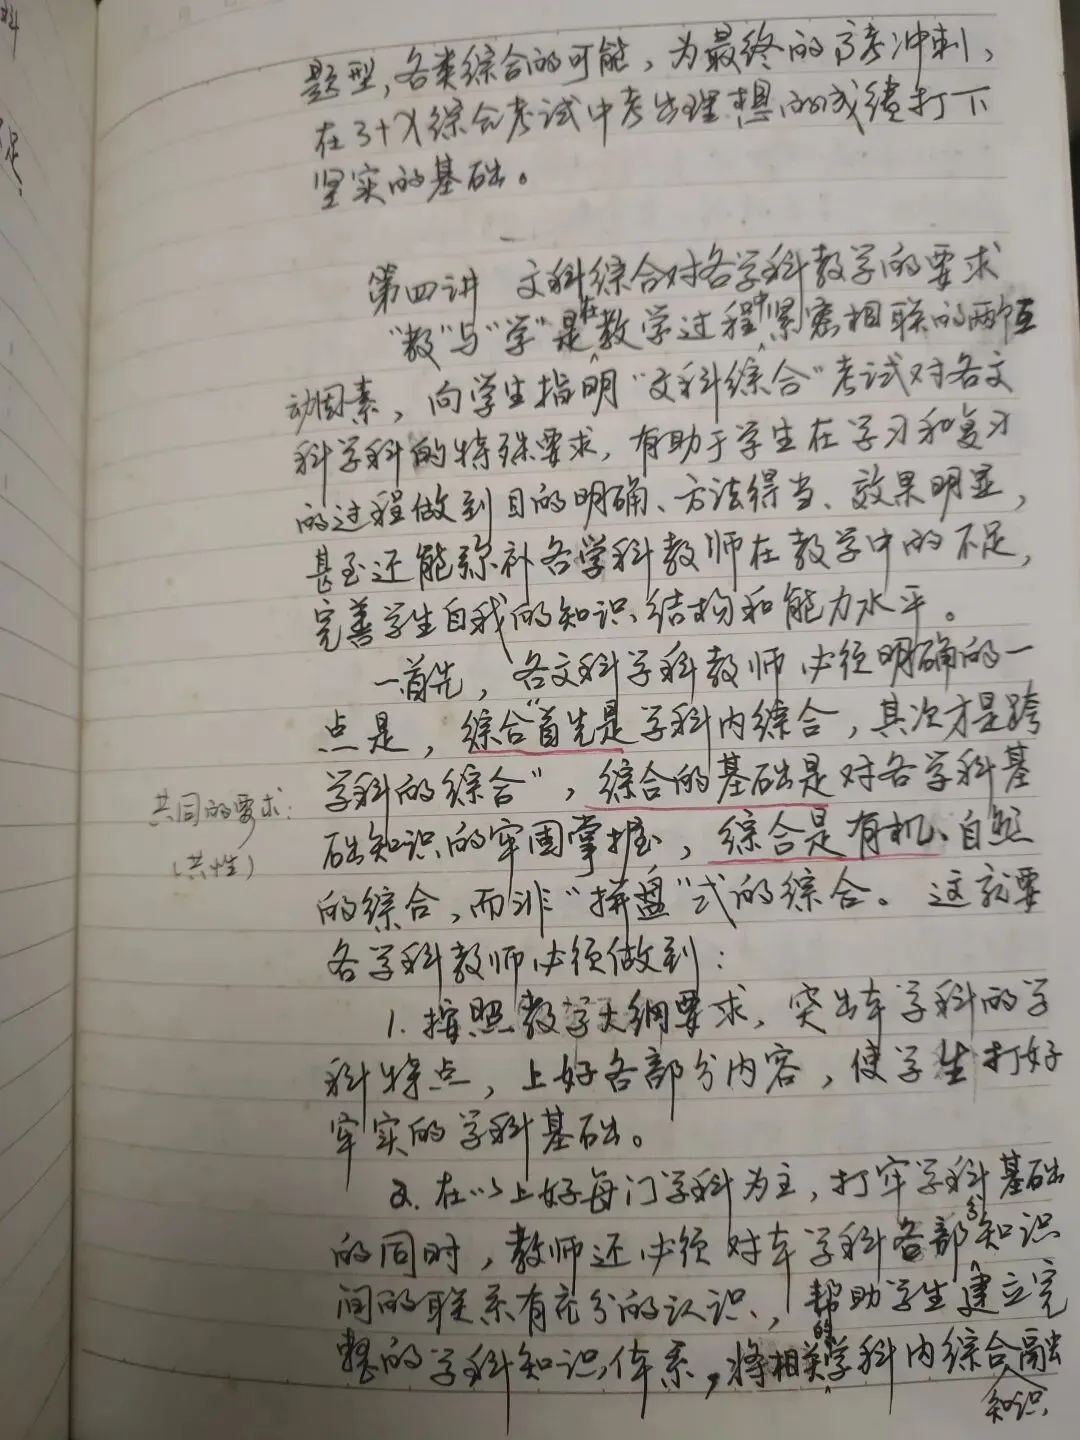 料
足，
题型，各类综合的可能，为最终的高考冲刺，
在3+X综合考试中考出理想的成绩打下
坚实的基础。
第四讲 文科综合对各学科教学的要求
“教”与“学”是在教学过程中紧密相联的两个互
动因素，向学生指明“文科综合”考试对各文
科学科的特殊要求，有助于学生在学习和复习
的过程做到目的明确、方法得当、效果明显，
甚至还能弥补各学科教师在教学中的不足，
完善学生自我的知识结构和能力水平。
一首先，各文科学科教师必须明确的一
点是，综合“首先是学科内综合，其次才是跨
学科的综合”，综合的基础是对各学科基
础知识的牢固掌握，综合是有机、自然
的综合，而非“拼盘”式的综合。这就要
各学科教师必须做到：
共同的要求：
（共性）
1. 按照教学大纲要求，突出本学科的学
科特点，上好各部分内容，使学生打好
牢实的学科基础。
2. 在以上好每门学科为主，打牢学科基础
的同时，教师还必须对本学科各部分知识
间的联系有充分的认识，帮助学生建立完
整的学科知识体系，将相关的学科内综合知识融